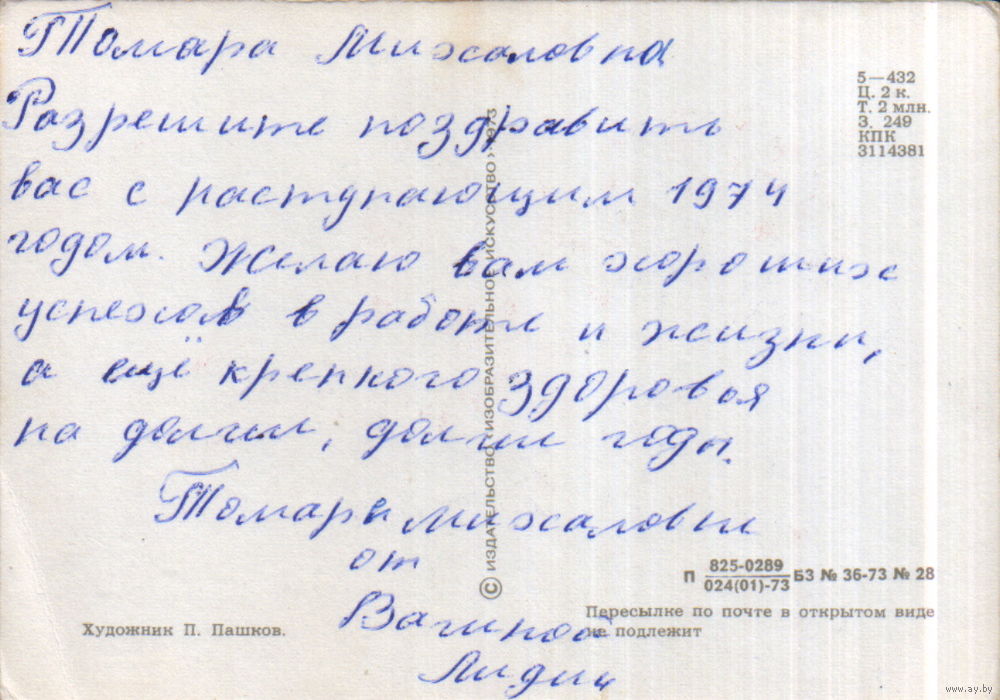 Томара Михаловна
Разрешите поздравить
вас с наступающим 1974
годом. Желаю вам хороших
успехов в работе и жизни,
а ещё крепкого здоровья
на долгие, долгие годы.
Томаре михаловне
от
Вагиной
Лидии
5—432
Ц. 2 к.
Т. 2 млн.
З. 249
КПК
3114381
© ИЗДАТЕЛЬСТВО «ИЗОБРАЗИТЕЛЬНОЕ ИСКУССТВО» 1973
П 825-0289 БЗ № 36-73 № 28
024(01)-73
Пересылке по почте в открытом виде
не подлежит
Художник П. Пашков.
www.ay.by